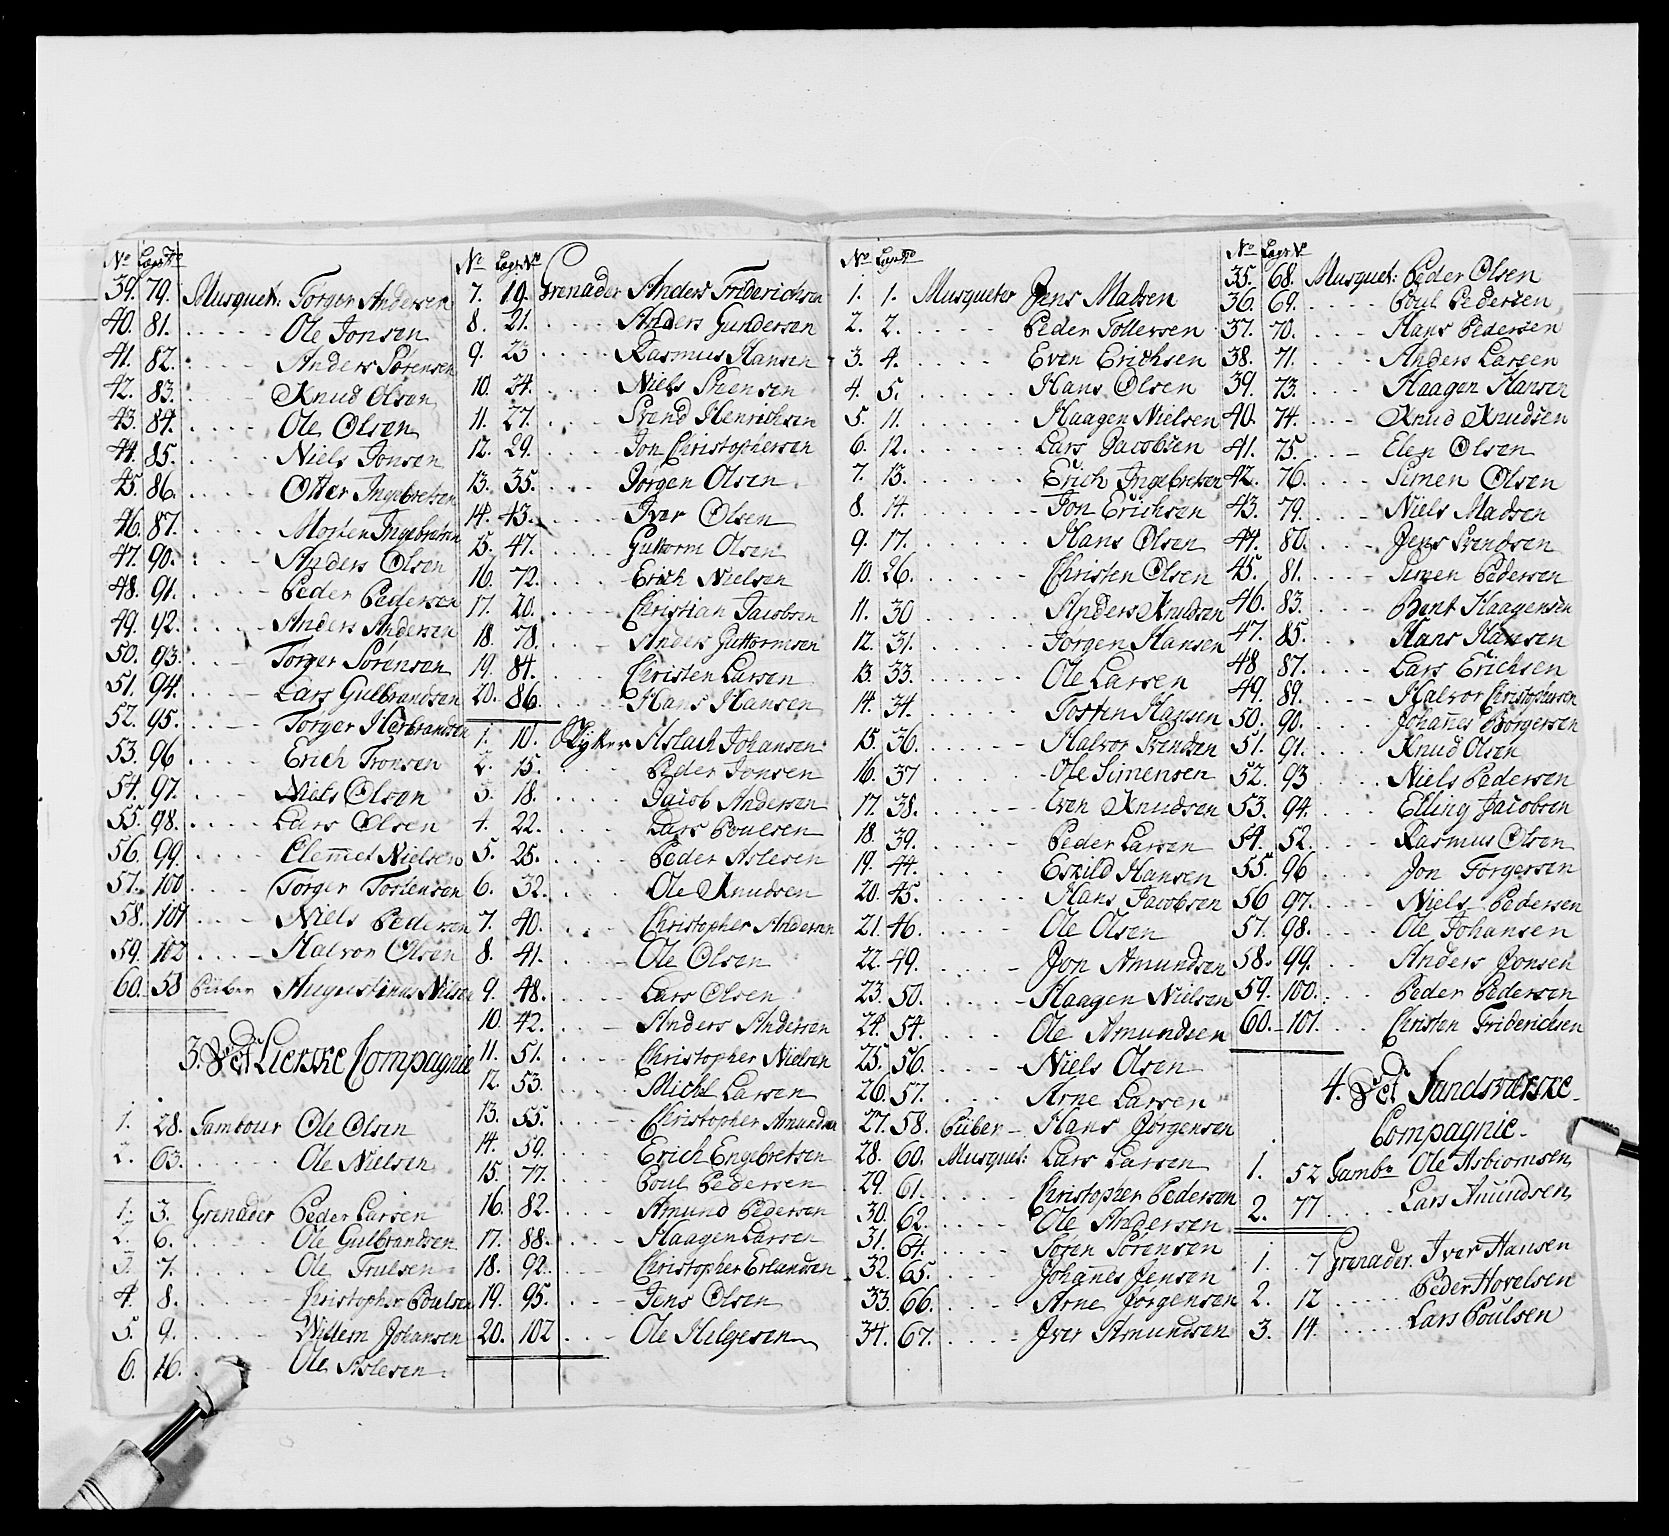 No Lægs No
39. 79. Musquet: Torger Andersen
40. 81. Ole Jonsen
41. 82. Anders Sørensen
42. 83. Knud Olsen
43. 84. Ole Olsen
44. 85. Niels Jonsen
45. 86. Otter Ingebretsen
46. 87. Morten Ingebretsen
47. 90. Anders Olsen
48. 91. Peder Pedersen
49. 92. Anders Andersen
50. 93. Torger Sørensen
51. 94. Lars Gulbrandsen
52. 95. Torger Herbrandsen
53. 96 Erich Tronsen
54. 97. Niels Olsen
55. 98. Lars Olsen
56. 99. Clemet Nielsen
57. 100 Torger Tostensen
58. 101 Niels Pedersen
59. 102 Halvor Olsen
60. 58 Piiber Augustinus Nilsen
3. Lierske Compagnie
1. 28. Tambour Ole Olsen
2. 63. Ole Nielsen
1. 3. Grenader Peder Larsen
2. 6. Ole Gulbrandsen
3. 7. Ole Trulsen
4. 8. Christopher Poulsen
5. 9. Willem Johansen
6. 16. Ole Aslesen
No Lægs No
7. 19. Grenader Anders Friderichsen
8. 21. Anders Gundersen
9. 23 Rasmus Hansen
10. 24. Niels Svensen
11. 27. Svend Henrichsen
12. 29. Jon Christophersen
13. 35. Jørgen Olsen
14. 43. Iver Olsen
15. 47. Guttorm Olsen
16. 72. Erich Nielsen
17. 20. Christian Jacobsen
18. 78. Anders Guttormsen
19. 84. Christen Larsen
20. 86. Hans Hansen
1. 10. Skytter Aslach Johansen
2. 15. Peder Jonsen
3. 18. Jacob Andersen
4. 22. Lars Poulsen
5. 25. Peder Aslesen
6. 32. Ole Knudsen
7. 40. Christopher Andersen
8. 41. Ole Olsen
9. 48. Lars Olsen
10. 42. Anders Andersen
11. 51. Christopher Nielsen
12. 53. Michl Larsen
13. 55. Christopher Amundsen
14. 59. Erich Engebretsen
15. 77. Poul Pedersen
16. 82. Amund Pedersen
17. 88. Haagen Larsen
18. 92. Christopher Erlandsen
19. 95. Jens Olsen
20. 102 Ole Helgesen
No Lægs No
1. 1. Musqueter Jens Madsen
2. 2. Peder Tollersen
3. 4. Even Erichsen
4. 5. Hans Olsen
5. 11. Haagen Nielsen
6. 12. Lars Jacobsen
7. 13. Erich Ingebretsen
8. 14. Jon Erichsen
9. 17. Hans Olsen
10. 26. Christen Olsen
11. 30 Anders Knudsen
12. 31. Jørgen Hansen
13. 33. Ole Larsen
14. 34. Tosten Hansen
15. 36. Halvor Svendsen
16. 37 Ole Simensen
17. 38. Even Knudsen
18. 39. Peder Larsen
19. 44. Eskild Hansen
20. 45. Hans Jacobsen
21. 46. Ole Olsen
22. 49. Jon Amundsen
23. 50. Haagen Nielsen
24. 54. Ole Amundsen
25. 56. Niels Olsen
26. 57. Arne Larsen
27. 58. Piiber Hans Jørgensen
28. 60. Musquet: Lars Larsen
29. 61. Christopher Pedersen
30. 62. Ole Andersen
31. 64. Søren Sørensen
32. 65. Johanes Jensen
33. 66. Arne Jørgensen
34. 67. Iver Amundsen
No Lægs No
35. 68. Musquet: Peder Olsen
36. 69. Poul Pedersen
37. 70. Hans Pedersen
38. 71. Anders Larsen
39. 73. Haagen Hansen
40. 74. Knud Knudsen
41. 75. Elen Olsen
42. 76. Simen Olsen
43. 79. Niels Madsen
44. 80. Jens Svendsen
45. 81. Simen Pedersen
46. 83. Bent Haagensen
47. 85. Hans Hansen
48. 87. Lars Erichsen
49. 89. Halvor Christophersen
50. 90. Johanes Borgersen
51. 91. Knud Olsen
52. 93 Niels Pedersen
53. 94. Elling Jacobsen
54. 52. Rasmus Olsen
55. 96 Jon Torgersen
56 97. Niels Pedersen
57. 98. Ole Johansen
58. 99. Anders Jonsen
59. 100. Peder Pedersen
60. 101. Christen Friderichsen
4. Sandsværske
Compagnie
1. 52 Tambr Ole Asbiornsen
2. 77 Lars Amundsen
1. 7 Grenader. Iver Hansen
2. 12 Peder Hovelsen
3. 14. Lars Poulsen